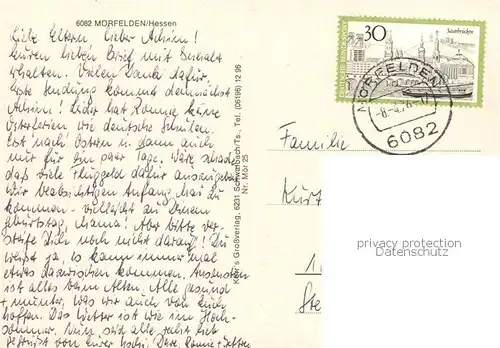 6082 MÖRFELDEN/Hessen
Liebe Eltern, lieber Achim!
Euren lieben Brief mit Scheck
erhalten. Vielen Dank dafür,
erste Sendung kommt demnächst
Achim! Leider hat Ronnie keine
Osterferien wie deutsche Schulen.
Erst nach Ostern u. dann auch
nur für ein paar Tage. Wäre schade
daß viele Fluggeld dafür auszugeben
Wir beabsichtigen Anfang Mai zu
kommen - vielleicht an Deinem
Geburtstag, Mama! Aber bitte ver-
steife Dich noch nicht darauf! Du
weißt ja, es kann immer mal
etwas dazwischen kommen. Ansonsten
ist alles beim Alten. Alle gesund
+ munter, was wir auch von Euch
hoffen. Das Wetter ist wie im Hoch-
sommer. Nun, seid alle recht lieb
gegrüßt von Eurer
Krüger's Großverlag, 6231 Schwalbach/Ts., Tel. (06196) 12 95
Nr. Mör 25
30
Saarbrücken
DEUTSCHE BUNDESPOST
MÖRFELDEN
6082
Familie
Kurt
1
privacy protection
Datenschutz